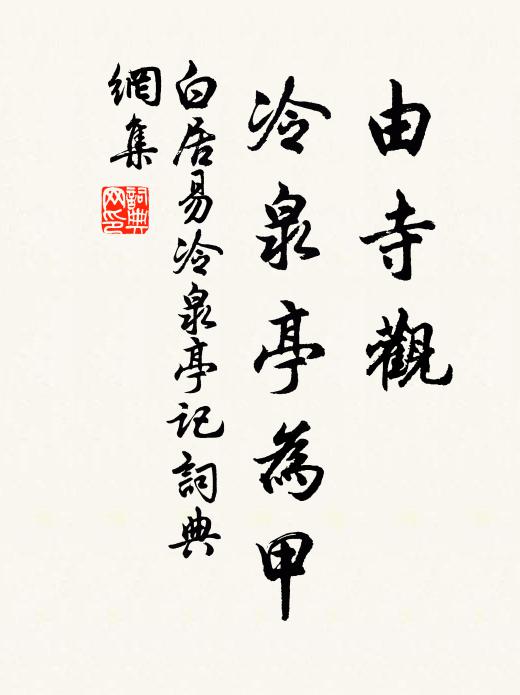 由寺觀
冷泉亭為甲
白居易冷泉亭記詞典
網集
詞典網印